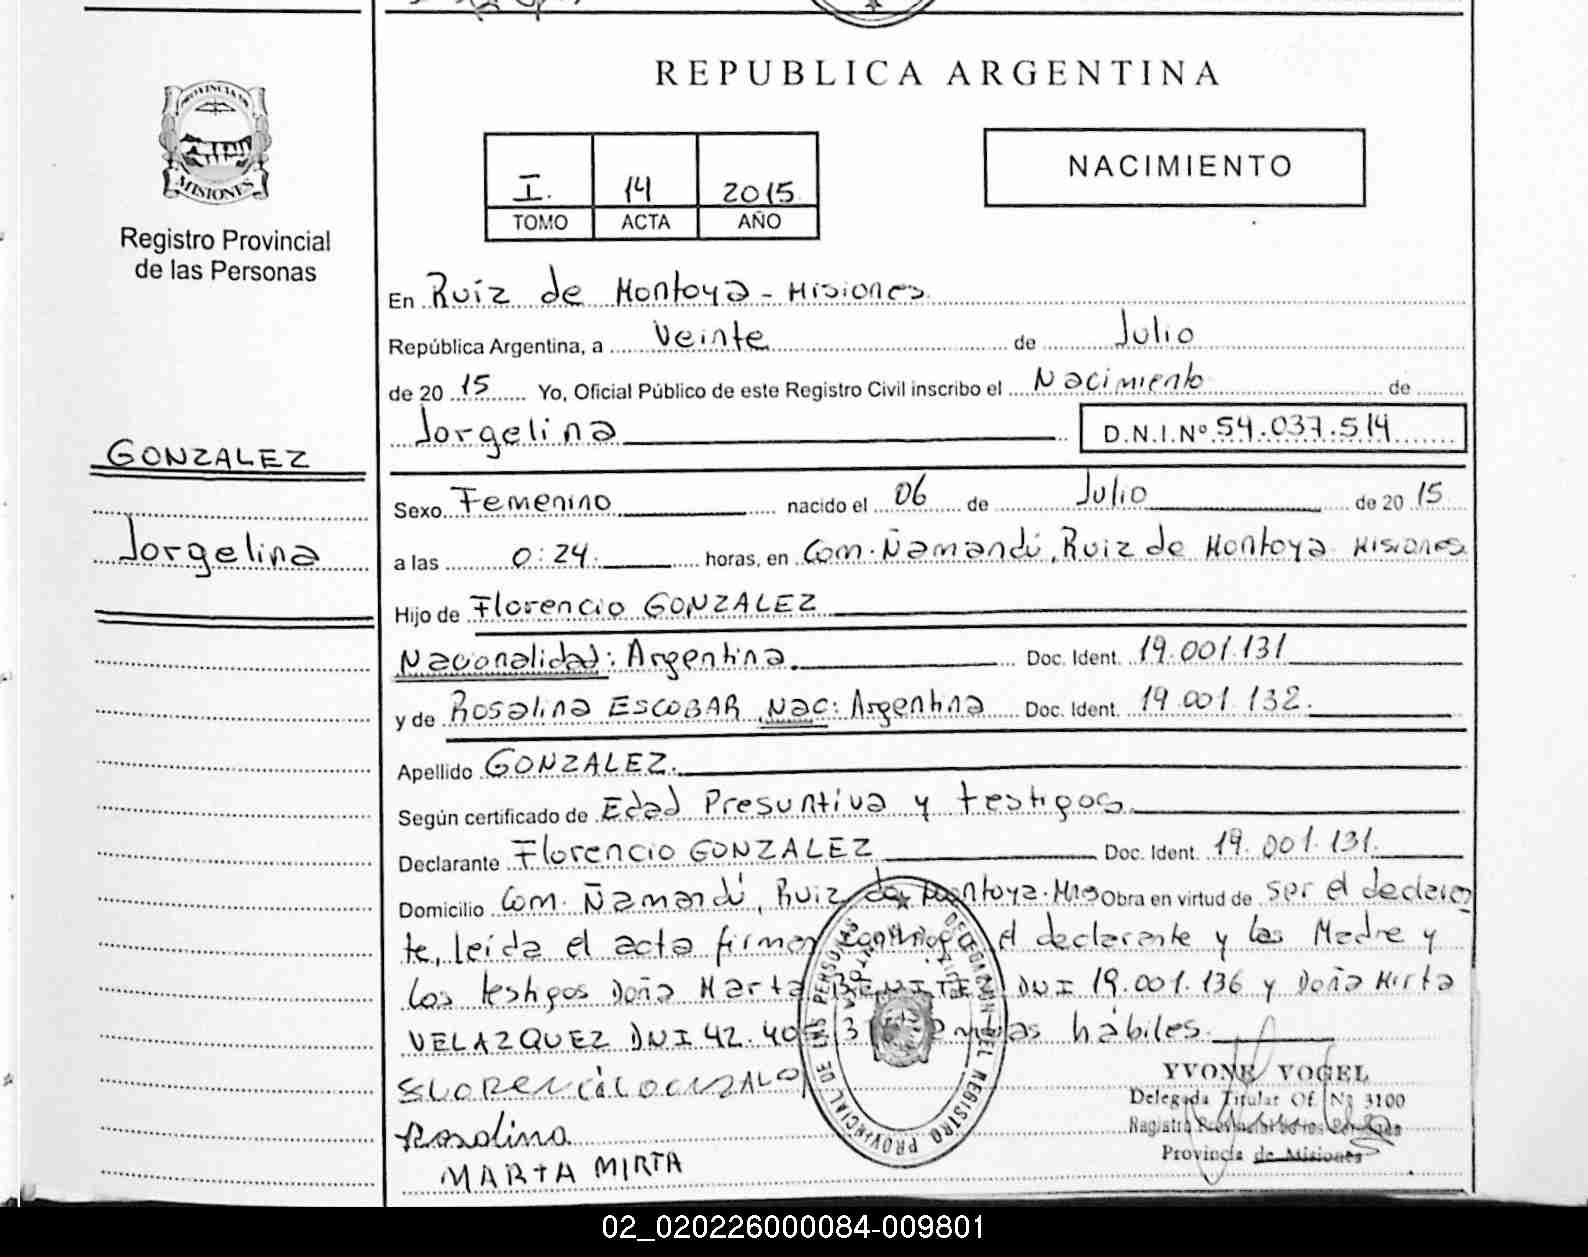 REPUBLICA ARGENTINA
PROVINCIA DE
MISIONES
Registro Provincial
de las Personas
I. 14 2015
TOMO ACTA AÑO
NACIMIENTO
En Ruiz de Montoya - Misiones
República Argentina, a Veinte de Julio
de 20 15 Yo, Oficial Público de este Registro Civil inscribo el Nacimiento de
Jorgelina D.N.I.Nº 54.037.514
GONZALEZ
Jorgelina
Sexo Femenino nacido el 06 de Julio de 20 15
a las 0:24. horas, en Com. Ñamandú, Ruiz de Montoya Misiones
Hijo de Florencio GONZALEZ
Nacionalidad: Argentina. Doc. Ident. 19.001.131
y de Rosalina ESCOBAR Nac: Argentina Doc. Ident. 19.001.132.
Apellido GONZALEZ.
Según certificado de Edad Presuntiva y testigos.
Declarante Florencio GONZALEZ Doc. Ident. 19.001.131.
Domicilio Com. Ñamandú, Ruiz de Montoya. Mis Obra en virtud de ser el declaran
te, leída el acta firman conmigo el declarante y las Madre y
los testigos Doña Marta BENITEZ DNI 19.001.136 y Doña Mirta
VELAZQUEZ DNI 42.40 hábiles.
Rosalina
MARTA MIRTA
PROVINCIAL DE LAS PERSONAS
DEL REGISTRO
YVONE VOGEL
Delegada Titular Of. Nº 3100
Registro Provincial de las Personas
Provincia de Misiones
02_020226000084-009801